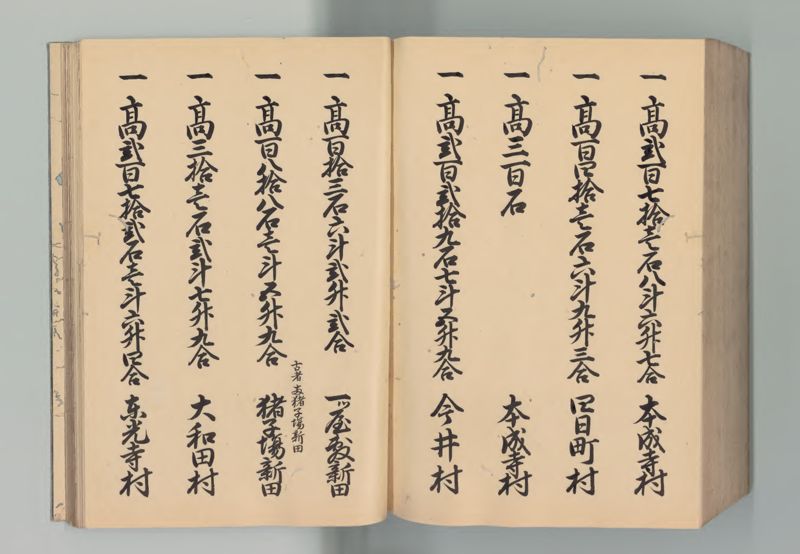 一高弐百七拾壱石八斗六升七合 本成寺村
一高百四拾壱石六斗九升三合 四日町村
一高三百石 本成寺村
一高弐百弐拾九石七斗五升九合 今井村
一高百拾三石六斗弐升弐合 一ツ屋敷新田
古者 猪子場新田
一高百八拾八石壱斗五升九合 猪子場新田
一高三拾壱石弐斗七升九合 大和田村
一高弐百七拾弐石壱斗六升四合 東光寺村